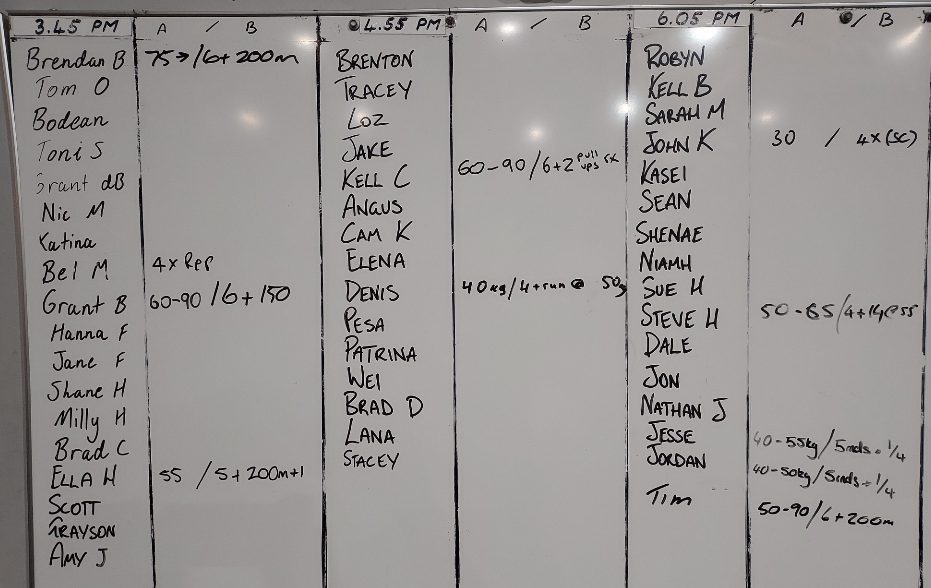 3.45 PM A / B
Brendan B 75→/6+200m
Tom O
Bodean
Toni S
Grant dB
Nic M
Katina
Bel M 4x Rep
Grant B 60-90/6+150
Hanna F
Jane F
Shane H
Milly H
Brad C
ELLA H 55 / 5+200m+1
SCOTT
GRAYSON
AMY J
4.55 PM A / B
BRENTON
TRACEY
LOZ
JAKE
KELL C 60-90/6+2 pull ups rx
ANGUS
CAM K
ELENA
DENIS 40kg/4+run@ 50
PESA
PATRINA
WEI
BRAD D
LANA
STACEY
6.05 PM A / B
ROBYN
KELL B
SARAH M
JOHN K 30 / 4x(SC)
KASEI
SEAN
SHENAE
NIAMH
SUE H
STEVE H 50-65/4+14@55
DALE
JON
NATHAN J
JESSE 40-55kg/5rnds+1/4
JORDAN 40-50kg/5rnds+1/4
Tim 50-90/6+200m